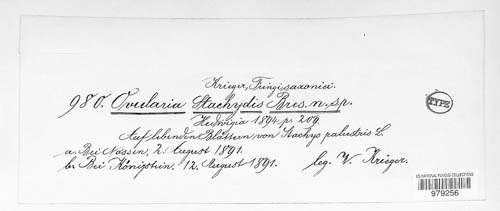 Krieger, Fungi saxonici.
980. Ovularia Stachydis Bres. n. sp.
TYPE
Hedwigia 1894 p. 209.
Auf lebenden Blättern von Stachys palustris L.
a. Bei Nossen, 2. August 1891.
b. Bei Königstein, 12. August 1891. leg. W. Krieger.
US NATIONAL FUNGUS COLLECTIONS
979256